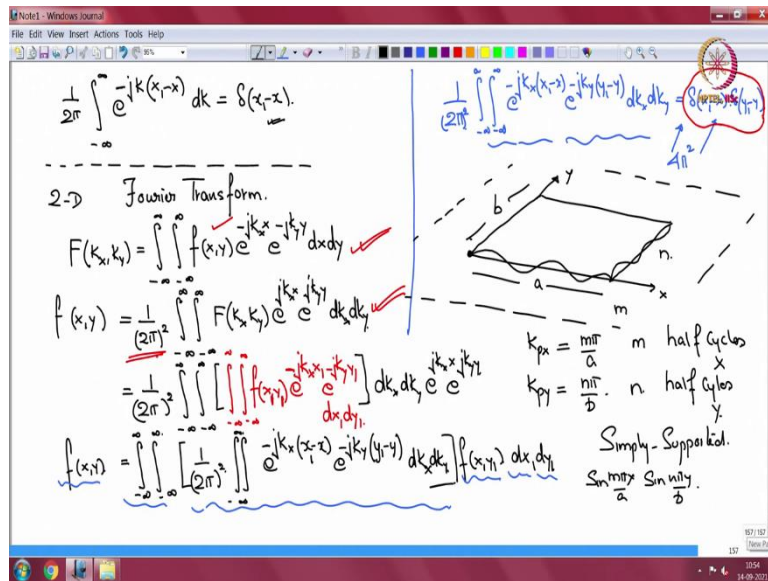 Note1 - Windows Journal
File Edit View Insert Actions Tools Help
95%
B I
1/2π ∫_{-∞}^{∞} e^{-jk(x₁-x)} dk = δ(x₁-x).
2-D Fourier Transform.
F(kₓ,k_y) = ∫_{-∞}^{∞} ∫_{-∞}^{∞} f(x,y) e^{-jkₓx} e^{-jk_y y} dxdy
f(x,y) = 1/(2π)² ∫_{-∞}^{∞} ∫_{-∞}^{∞} F(kₓ k_y) e^{jkₓx} e^{jk_y y} dkₓdk_y
= 1/(2π)² ∫_{-∞}^{∞} ∫_{-∞}^{∞} [∫_{-∞}^{∞} ∫_{-∞}^{∞} f(x₁y₁) e^{-jkₓx₁} e^{-jk_y y₁} dx₁dy₁] dkₓ dk_y e^{jkₓx} e^{jk_y y}
f(x,y) = ∫_{-∞}^{∞} ∫_{-∞}^{∞} [1/(2π)² ∫∫_{-∞}^{∞} e^{-jkₓ(x₁-x)} e^{-jk_y(y₁-y)} dkₓdk_y] f(x₁y₁) dx₁dy₁
1/(2π)² ∫_{-∞}^{∞} ∫_{-∞}^{∞} e^{-jkₓ(x₁-x)} e^{-jk_y(y₁-y)} dkₓdk_y = δ(x₁-x) δ(y₁-y)
4π²
y
b
n
a
x
m
k_{px} = mπ/a m half cycles
x
k_{py} = nπ/b. n half cycles
y.
Simply-Supported.
Sin mπx/a Sin nπy/b.
157/157
New Pa
157
10:54
14-09-2021